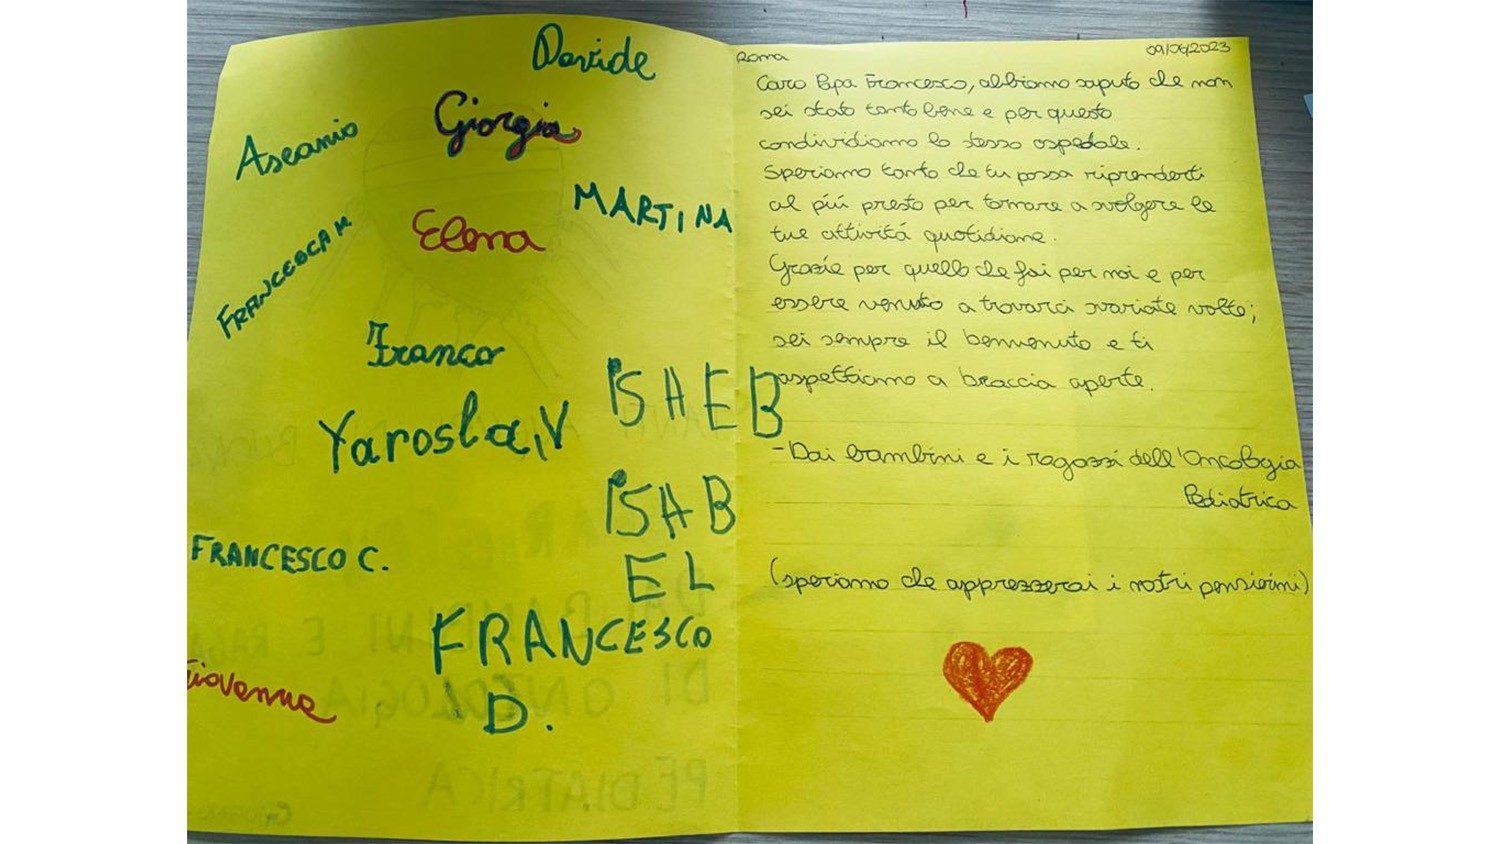 Davide
Giorgia
Ascanio
MARTINA
Elena
FRANCESCA M
Franco
ISAEB
Yarosla,V
ISAB
EL
FRANCESCO C.
FRANCESCO
D.
Giovanna
Roma 09/06/2023
Caro Papa Francesco, abbiamo saputo che non
sei stato tanto bene e per questo
condividiamo lo stesso ospedale.
Speriamo tanto che tu possa riprenderti
al piú presto per tornare a svolgere le
tue attivitá quotidiane.
Grazie per quello che fai per noi e per
essere venuto a trovarci svariate volte;
sei sempre il benvenuto e ti
aspettiamo a braccia aperte.
- Dai bambini e i ragazzi dell'Oncologia
Pediatrica
(speriamo che apprezzerai i nostri pensierini)